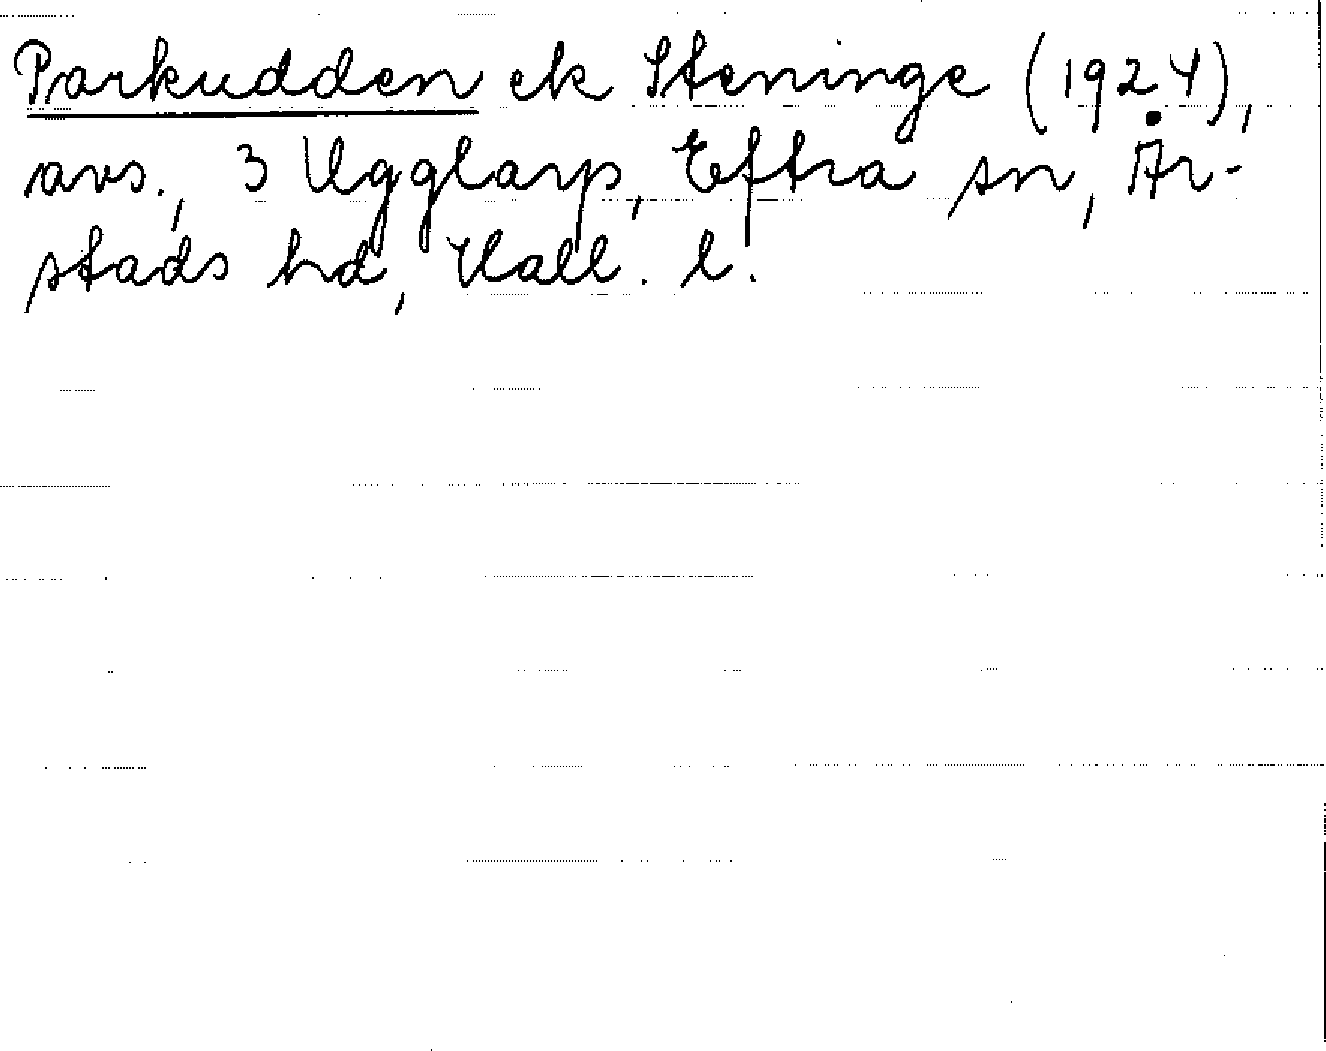 Parkudden ek Steninge (1924),
avs., 3 Ugglarp, Eftra sn, År-
stads hd, Hall. l.